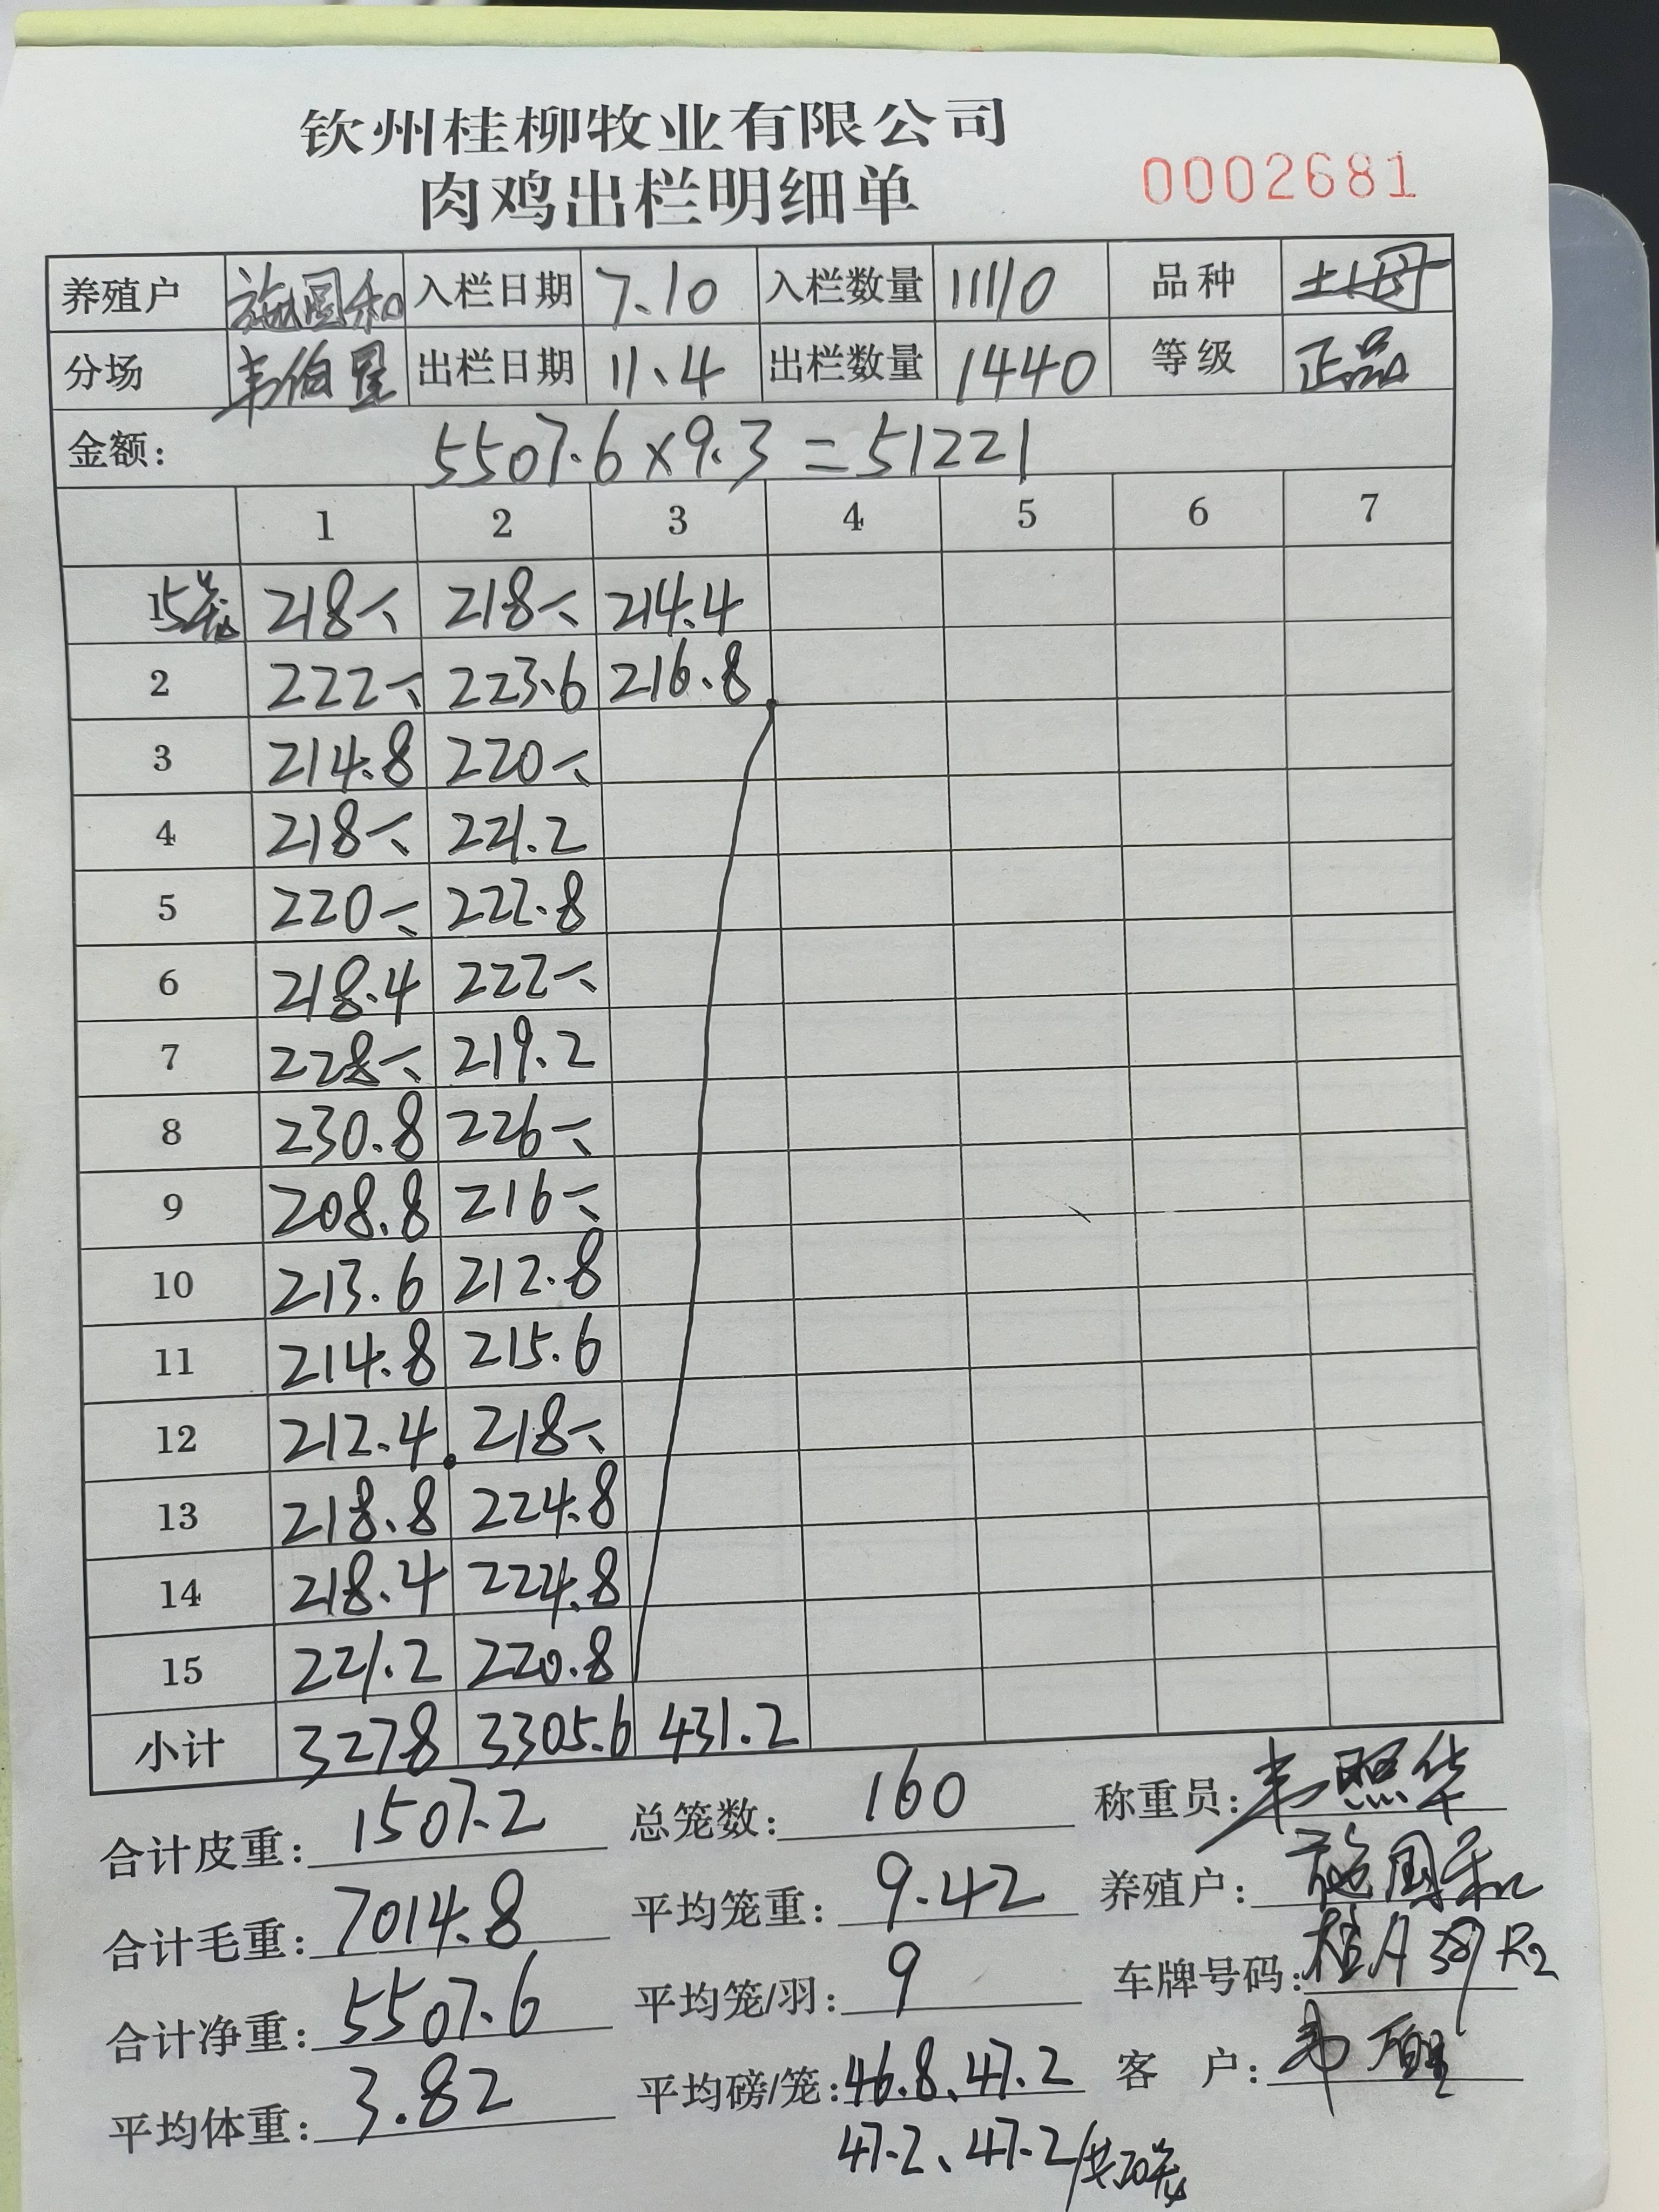 钦州桂柳牧业有限公司
肉鸡出栏明细单
0002681
养殖户 施国和 入栏日期 7.10 入栏数量 11110 品种 土母
分场 韦伯星 出栏日期 11.4 出栏数量 1440 等级 正品
金额: 5507.6×9.3=51221
1 2 3 4 5 6 7
15 218 218 214.4
2 222 223.6 216.8
3 214.8 220
4 218 221.2
5 220 222.8
6 218.4 222
7 228 219.2
8 230.8 226
9 208.8 216
10 213.6 212.8
11 214.8 215.6
12 212.4 218
13 218.8 224.8
14 218.4 224.8
15 221.2 220.8
小计 3278 3305.6 431.2
合计皮重: 1507.2 总笼数: 160 称重员: 韦照华
合计毛重: 7014.8 平均笼重: 9.42 养殖户: 施国和
合计净重: 5507.6 平均笼/羽: 9 车牌号码:
平均体重: 3.82 平均磅/笼: 46.8、47.2 客 户:
47.2、47.2/共